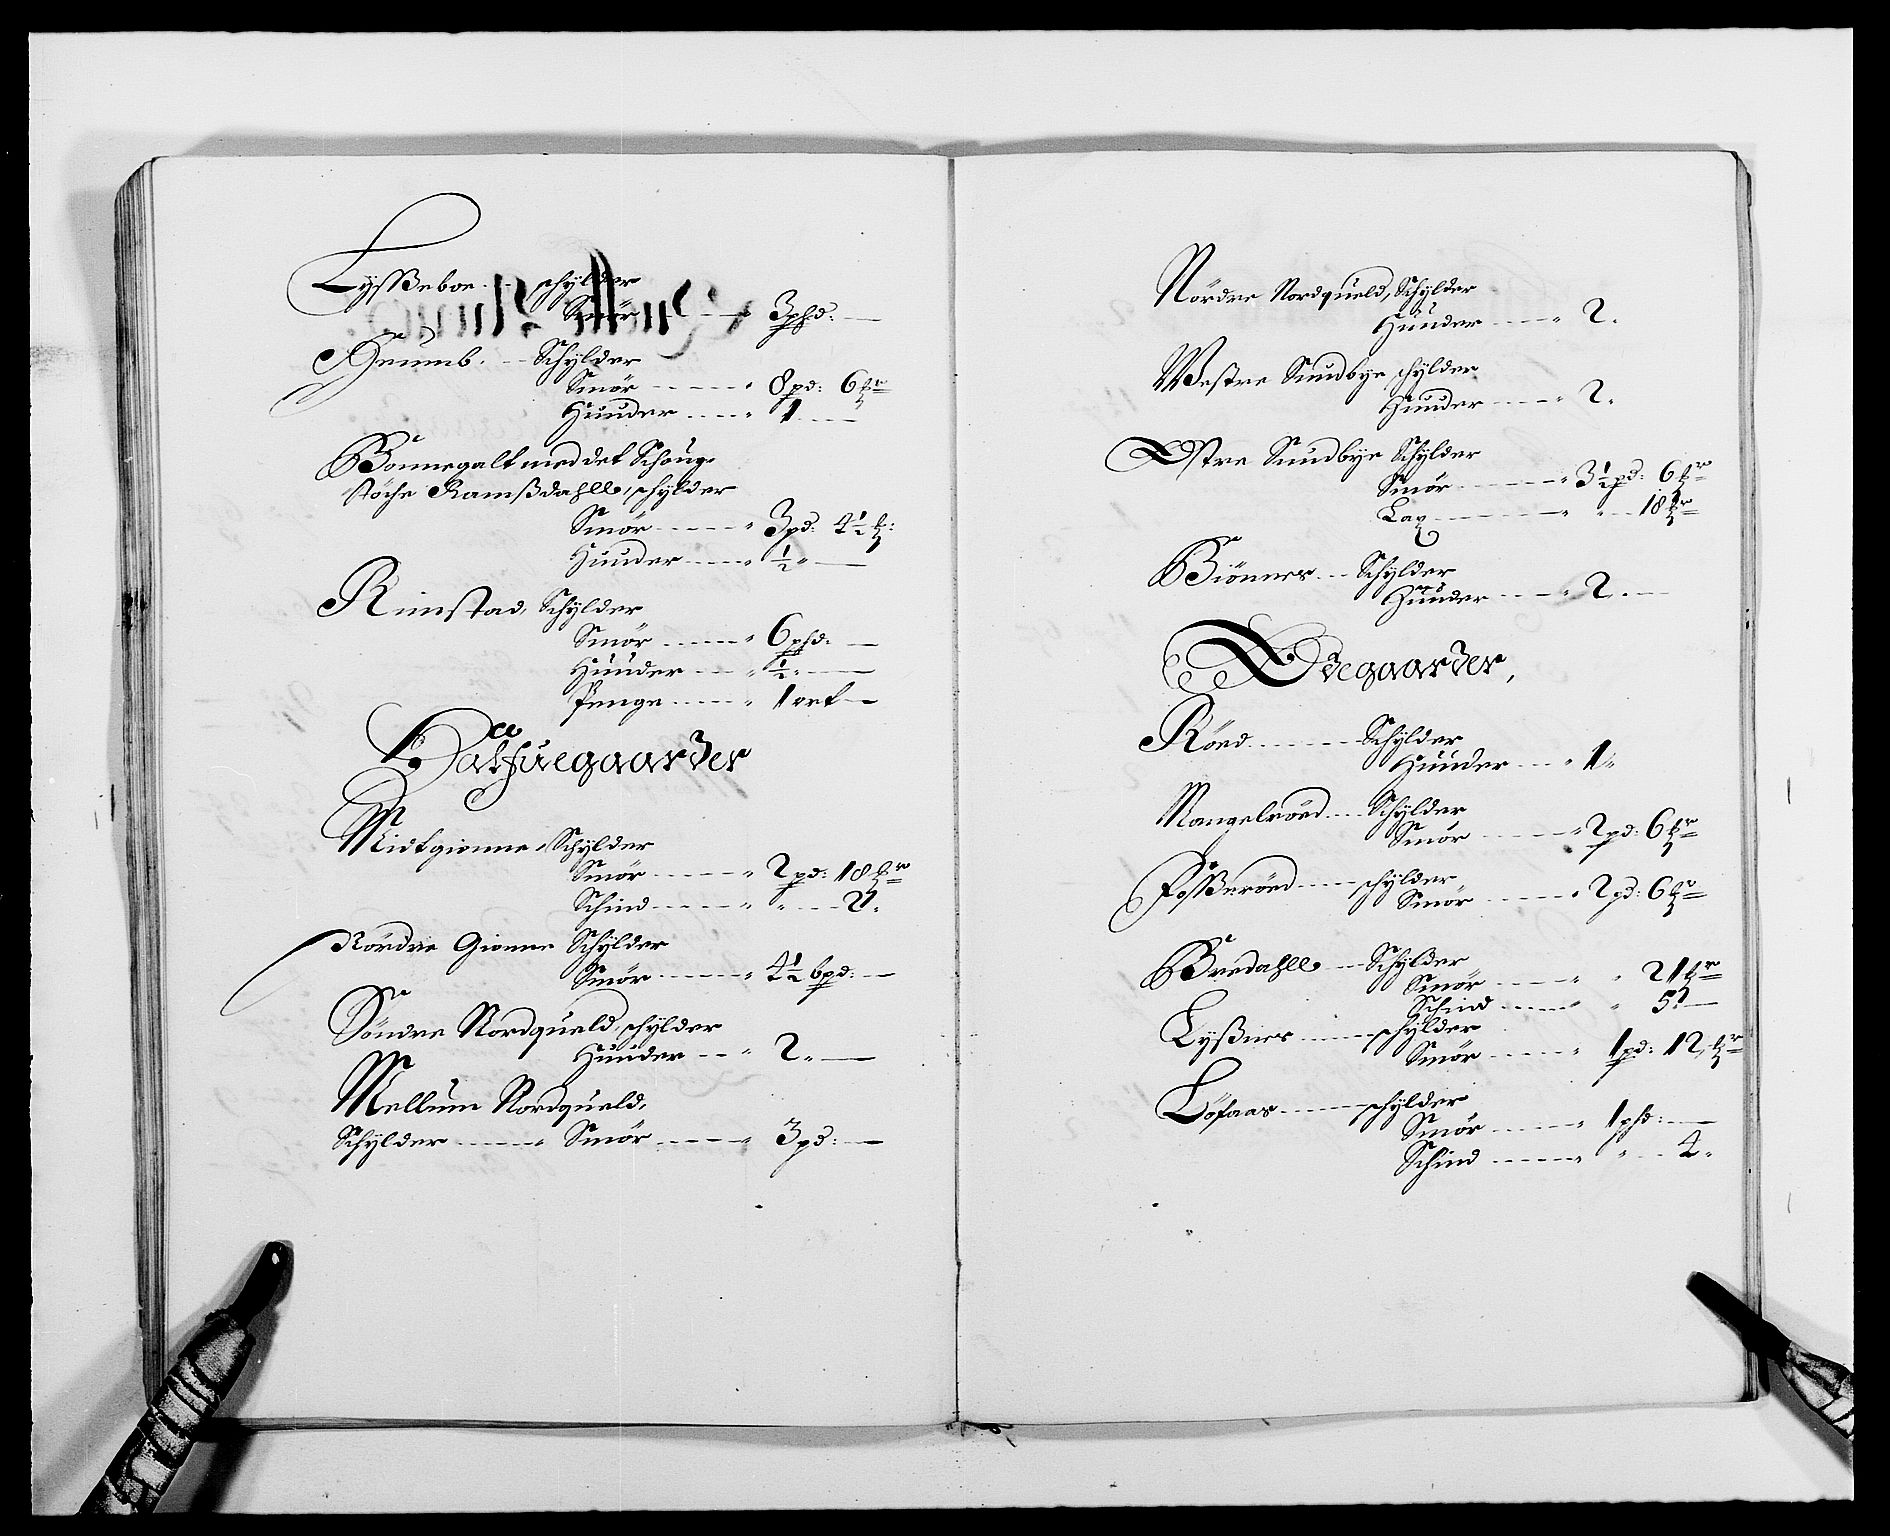 Lysseboe schylder
Smör 3 phd:
Grumb. Schylder
Smör 8 pd: 6
Huuder 1
Bonnegalt med det Schoug-
stöche Ramßdahll, schylder
Smör 3 pd: 4½
Huuder ½
Rimstad, Schylder
Smör 6 phd:
Huuder ½
Penge 1 ort
Halfuegaarder
Midtgionne Schylder
Smör 2 pd: 18
Schind 21
Nordre Gionne Schylder
Smör 4½ bpd:
Söndre Nordqueld, schylder
Huuder 2
Mellum Nordqueld,
Schylder Smör 3 pd:
Nördre Nordqueld, Schylder
Huuder 2
Westre Sundbye schylder
Huuder 2
Østre Sundbye Schylder
Smör 3½ pd: 6
Lax 18
Biönner Schylder
Huuder 2
Ødegaarder,
Röed Schylder
Huuder 1
Mangelröed Schylder
Smör 2 pd: 6
Foßeröed schylder
Smör 2 pd: 6
Bredahll Schylder
Smör 21
Schind 5
Lyßner schylder
Smör 1 pd: 12
Löfaas schylder
Smör 1 phd:
Schind 4